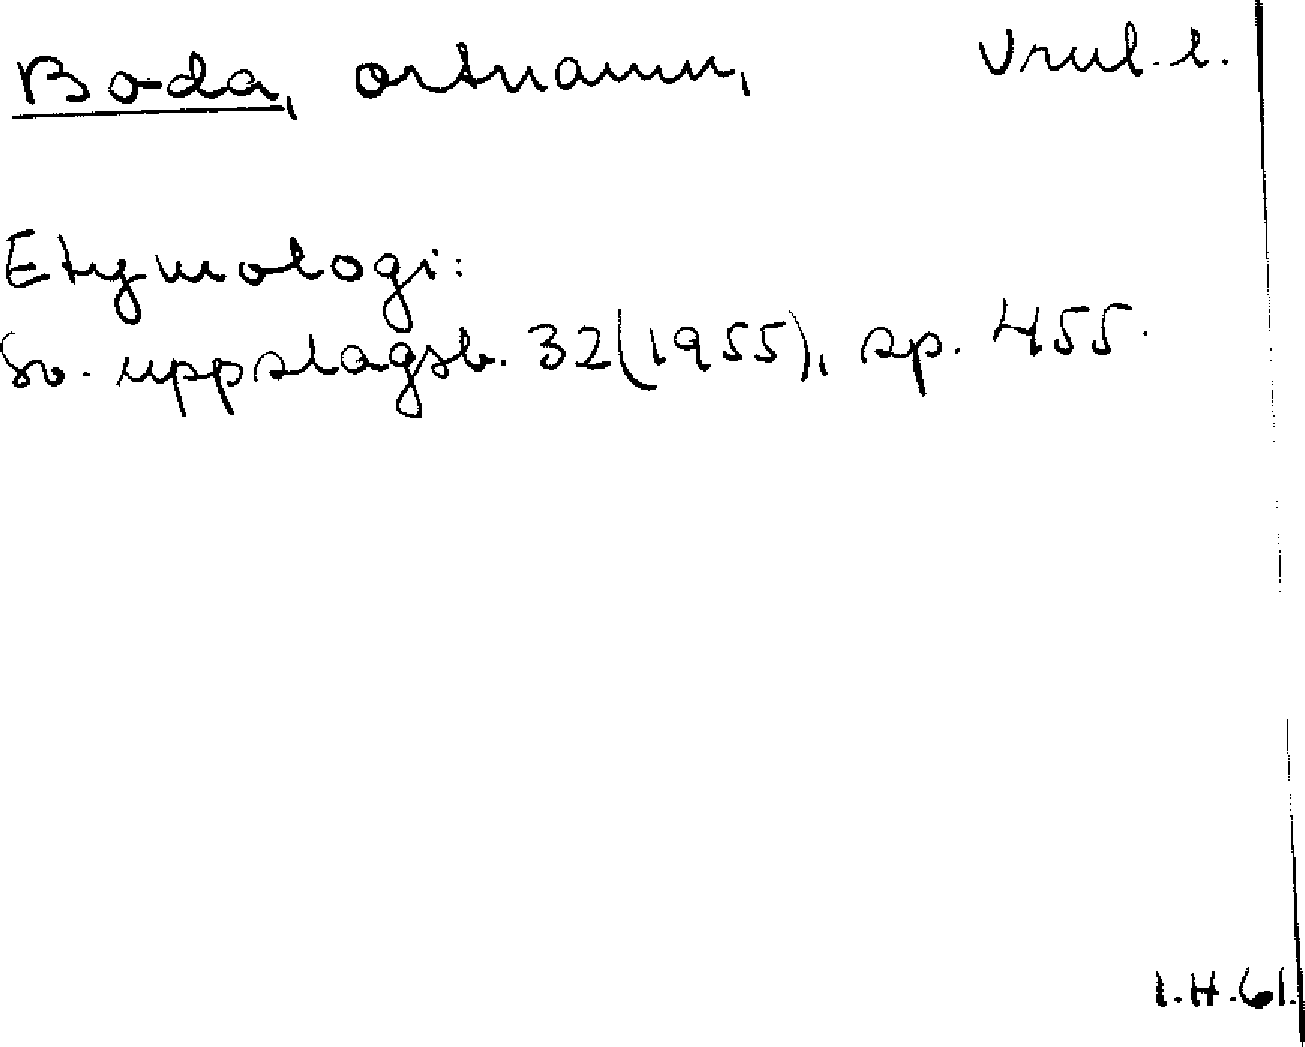 Boda, ortnamn, Vrml. l.
Etymologi:
Sv. uppslagsb. 32(1955), sp. 455.
I.H.61.